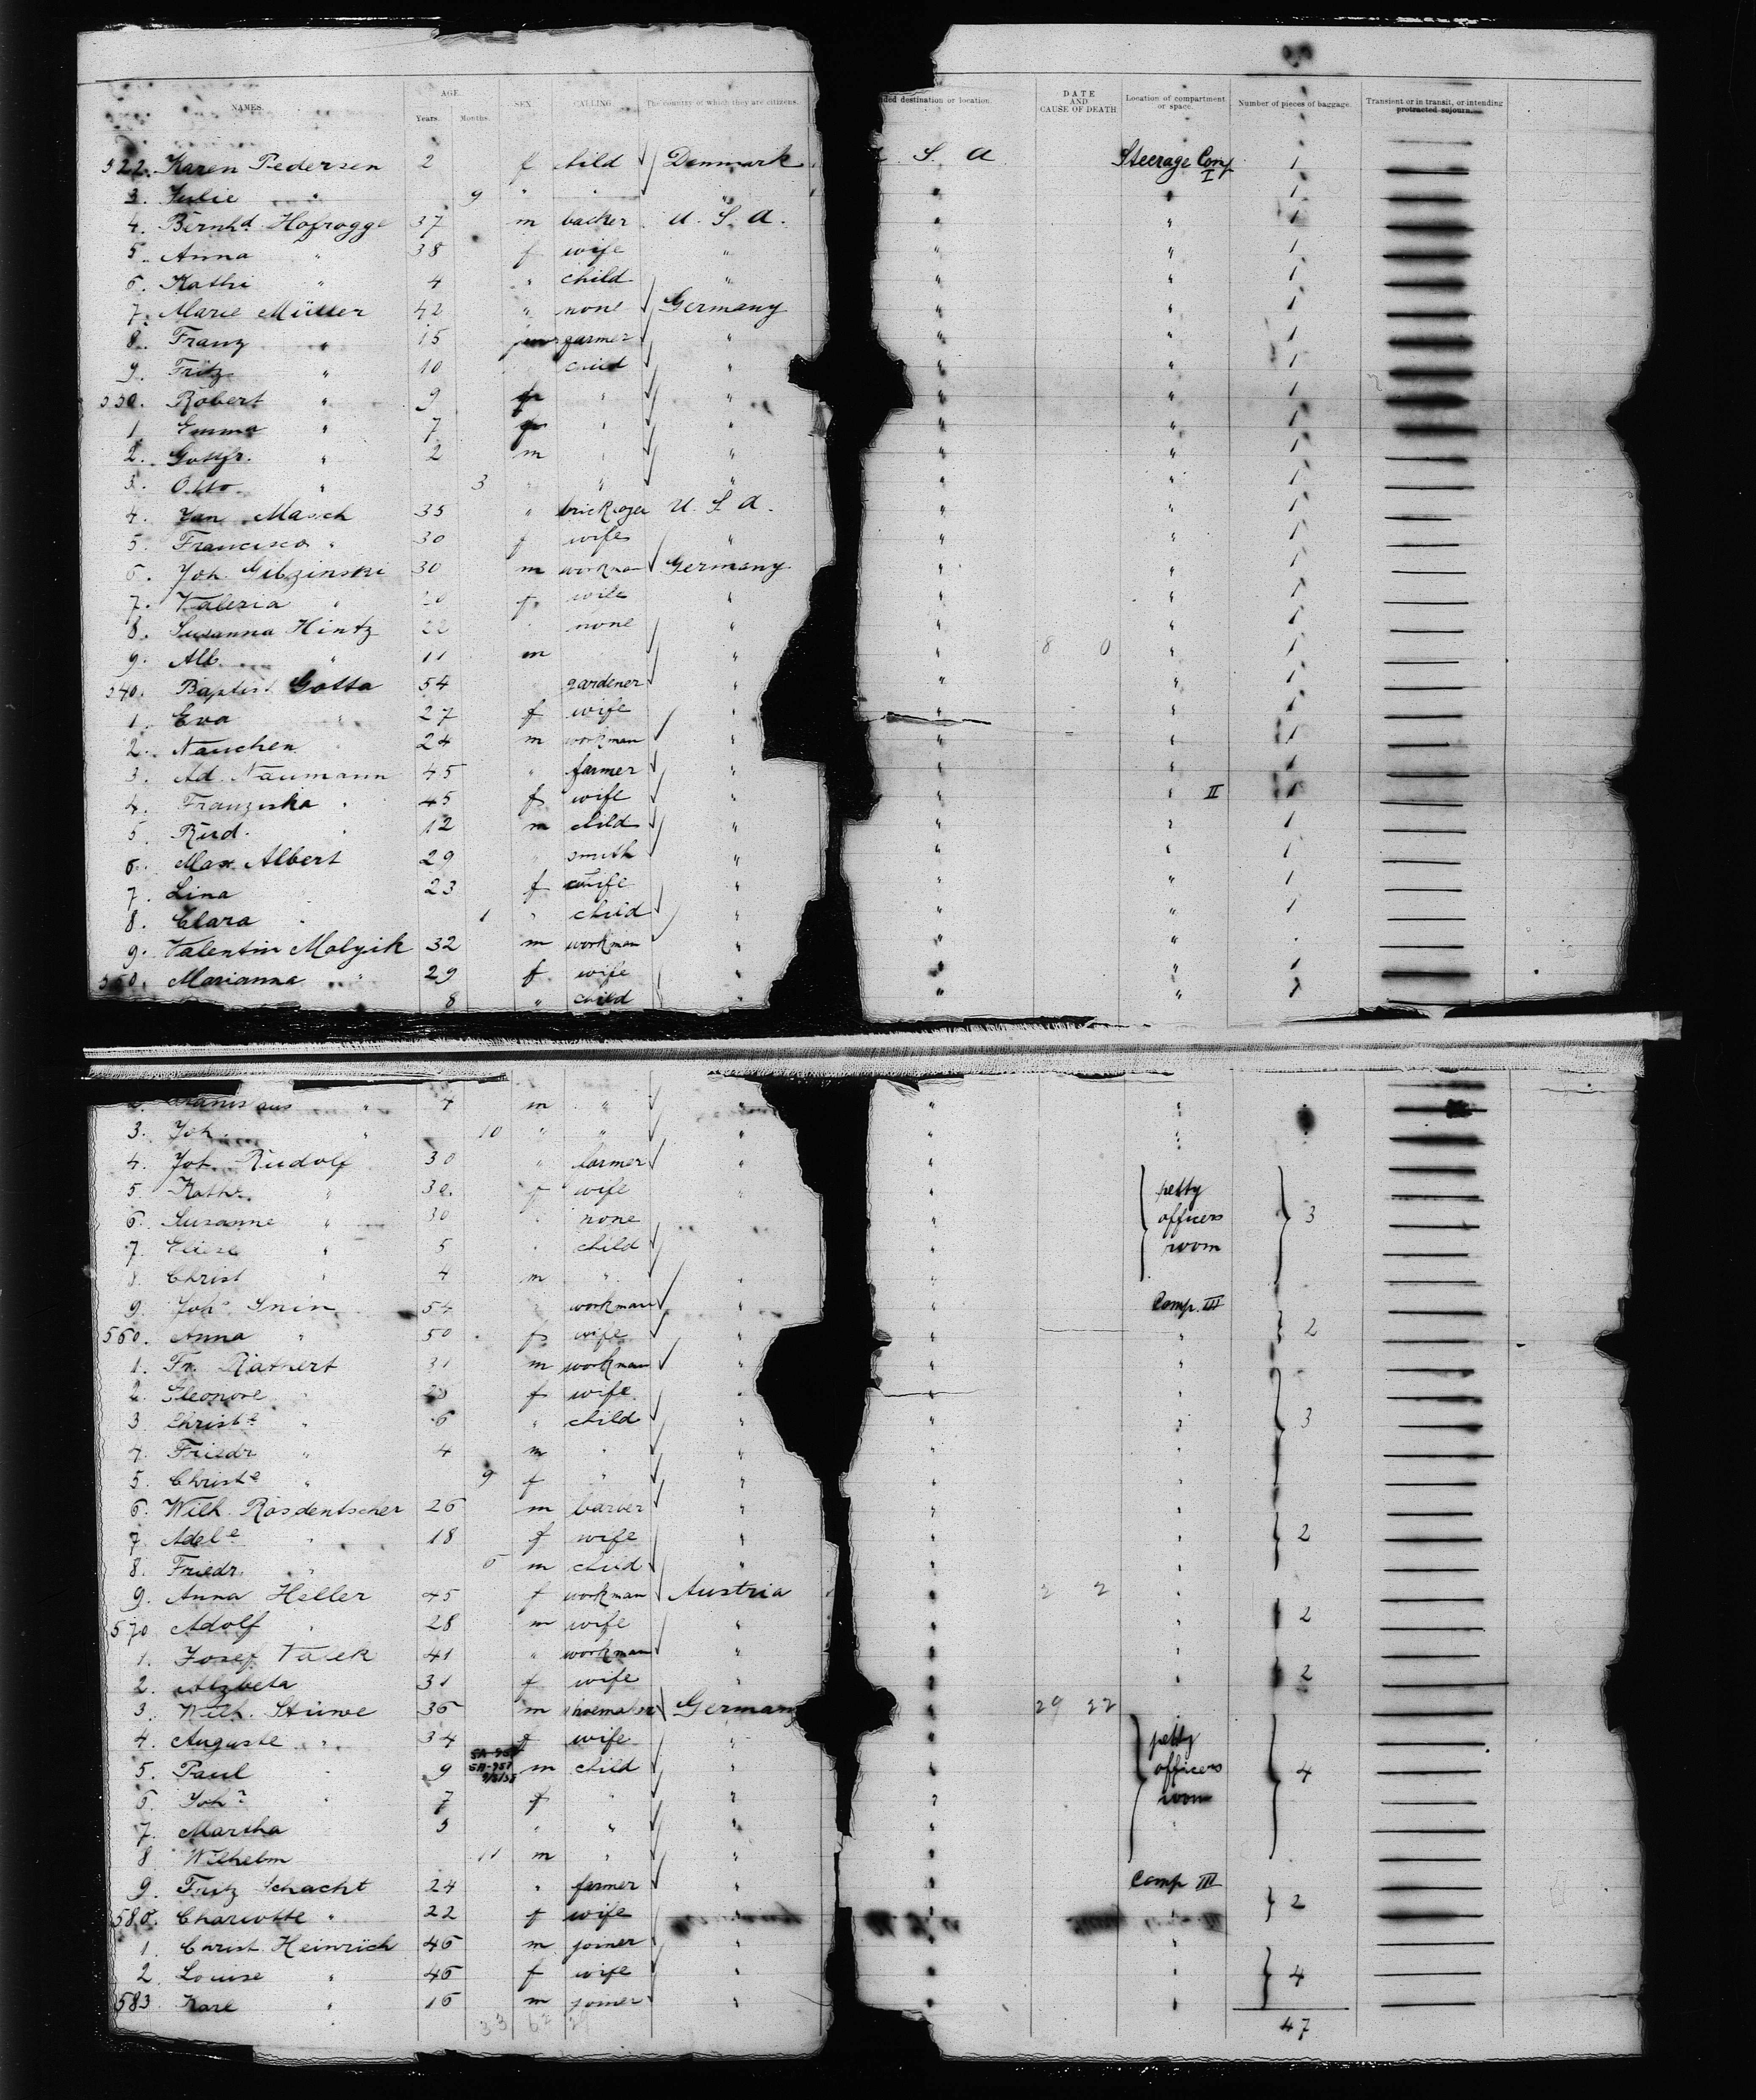 NAMES. AGE. Years. Months. SEX CALLING The country of which they are citizens. destination or location. DATE AND CAUSE OF DEATH Location of compartment or space. Number of pieces of baggage. Transient or in transit, or intending protracted sojourn.
522. Karen Pedersen 2 f child Denmark S. A Steerage Comp I 1
3. " 9 " " " " 1
4. Bernhd Hofrogge 37 m backer U. S. A. " " 1
5. Anna " 38 f wife " " " 1
6. Kathi " 4 " child " " " 1
7. Marie Müller 42 " none Germany " " 1
8. Franz " 15 farmer " " " 1
9. Fritz " 10 child " " " 1
530. Robert " 9 " " " " 1
1. Emma " 7 " " " " 1
2. Gottfr. " 2 m " " " " 1
3. Otto " 3 " " " " " 1
4. Jan Masch 35 " U. S. A. " " 1
5. Francisca " 30 f wife " " " 1
6. Joh. Gibzinski 30 m workman Germany " " 1
7. Valeria " 20 f wife " " " 1
8. Susanna Hintz 22 " none " " " 1
9. Alb. " 11 m " " 8 0 " 1
540. Baptist Gotta 54 gardener " " " 1
1. Eva " 27 f wife " " " 1
2. Nauchen " 24 m workman " " " 1
3. Ad. Naumann 45 " farmer " " " 1
4. Franziska " 45 f wife " " " II 1
5. Rud. " 12 m child " " " 1
6. Max Albert 29 " smith " " " 1
7. Lina 23 f wife " " " 1
8. Clara " 1 " child " " " 1
9. Valentin Molzik 32 m workman " " "
550. Marianna " 29 f wife " " " 1
8 " child " " " 1
2. Stanislaus " 4 m " " " "
3. Joh. " 10 " " " " "
4. Joh. Rudolf 30 " farmer " "
5. Kathe. " 30 f wife " " petty
6. Susanne " 30 " none " officers 3
7. " 5 " child " room
8. Christ " 4 m " " "
9. Joh. Snin 54 workman " " Comp. III
560. Anna " 50 f wife " " " 2
1. Fr. Rathert 31 m workman " " "
2. Eleonore " f wife " " "
3. Christe " 6 " child " " " 3
4. Friedr " 4 m " " " "
5. Christe " 9 f " " " "
6. Wilh. Rosdentscher 26 m barber " " "
7. Adele " 18 f wife " " " 2
8. Friedr. " 6 m child " " "
9. Anna Heller 45 f workman Austria " 2 2 "
570 Adolf " 28 m wife " " " 2
1. Josef Valek 41 " workman " " "
2. Alzbeta 31 f wife " " " 2
3. Wilh. Stüwe 36 m shoemaker Germany " 29 22 "
4. Auguste " 34 f wife " " petty
5. Paul " 9 m child " " officers 4
6. Johe " 7 f " " " room
7. Martha 3 " " " " "
8 Wilhelm 11 m " " "
9. Fritz Schacht 24 " farmer " " Comp III
580. Charlotte " 22 f wife " " 2
1. Christ. Heinrich 46 m joiner " " "
2. Louise " 46 f wife " " " 4
583. Karl " 16 m joiner " " "
33 62 47